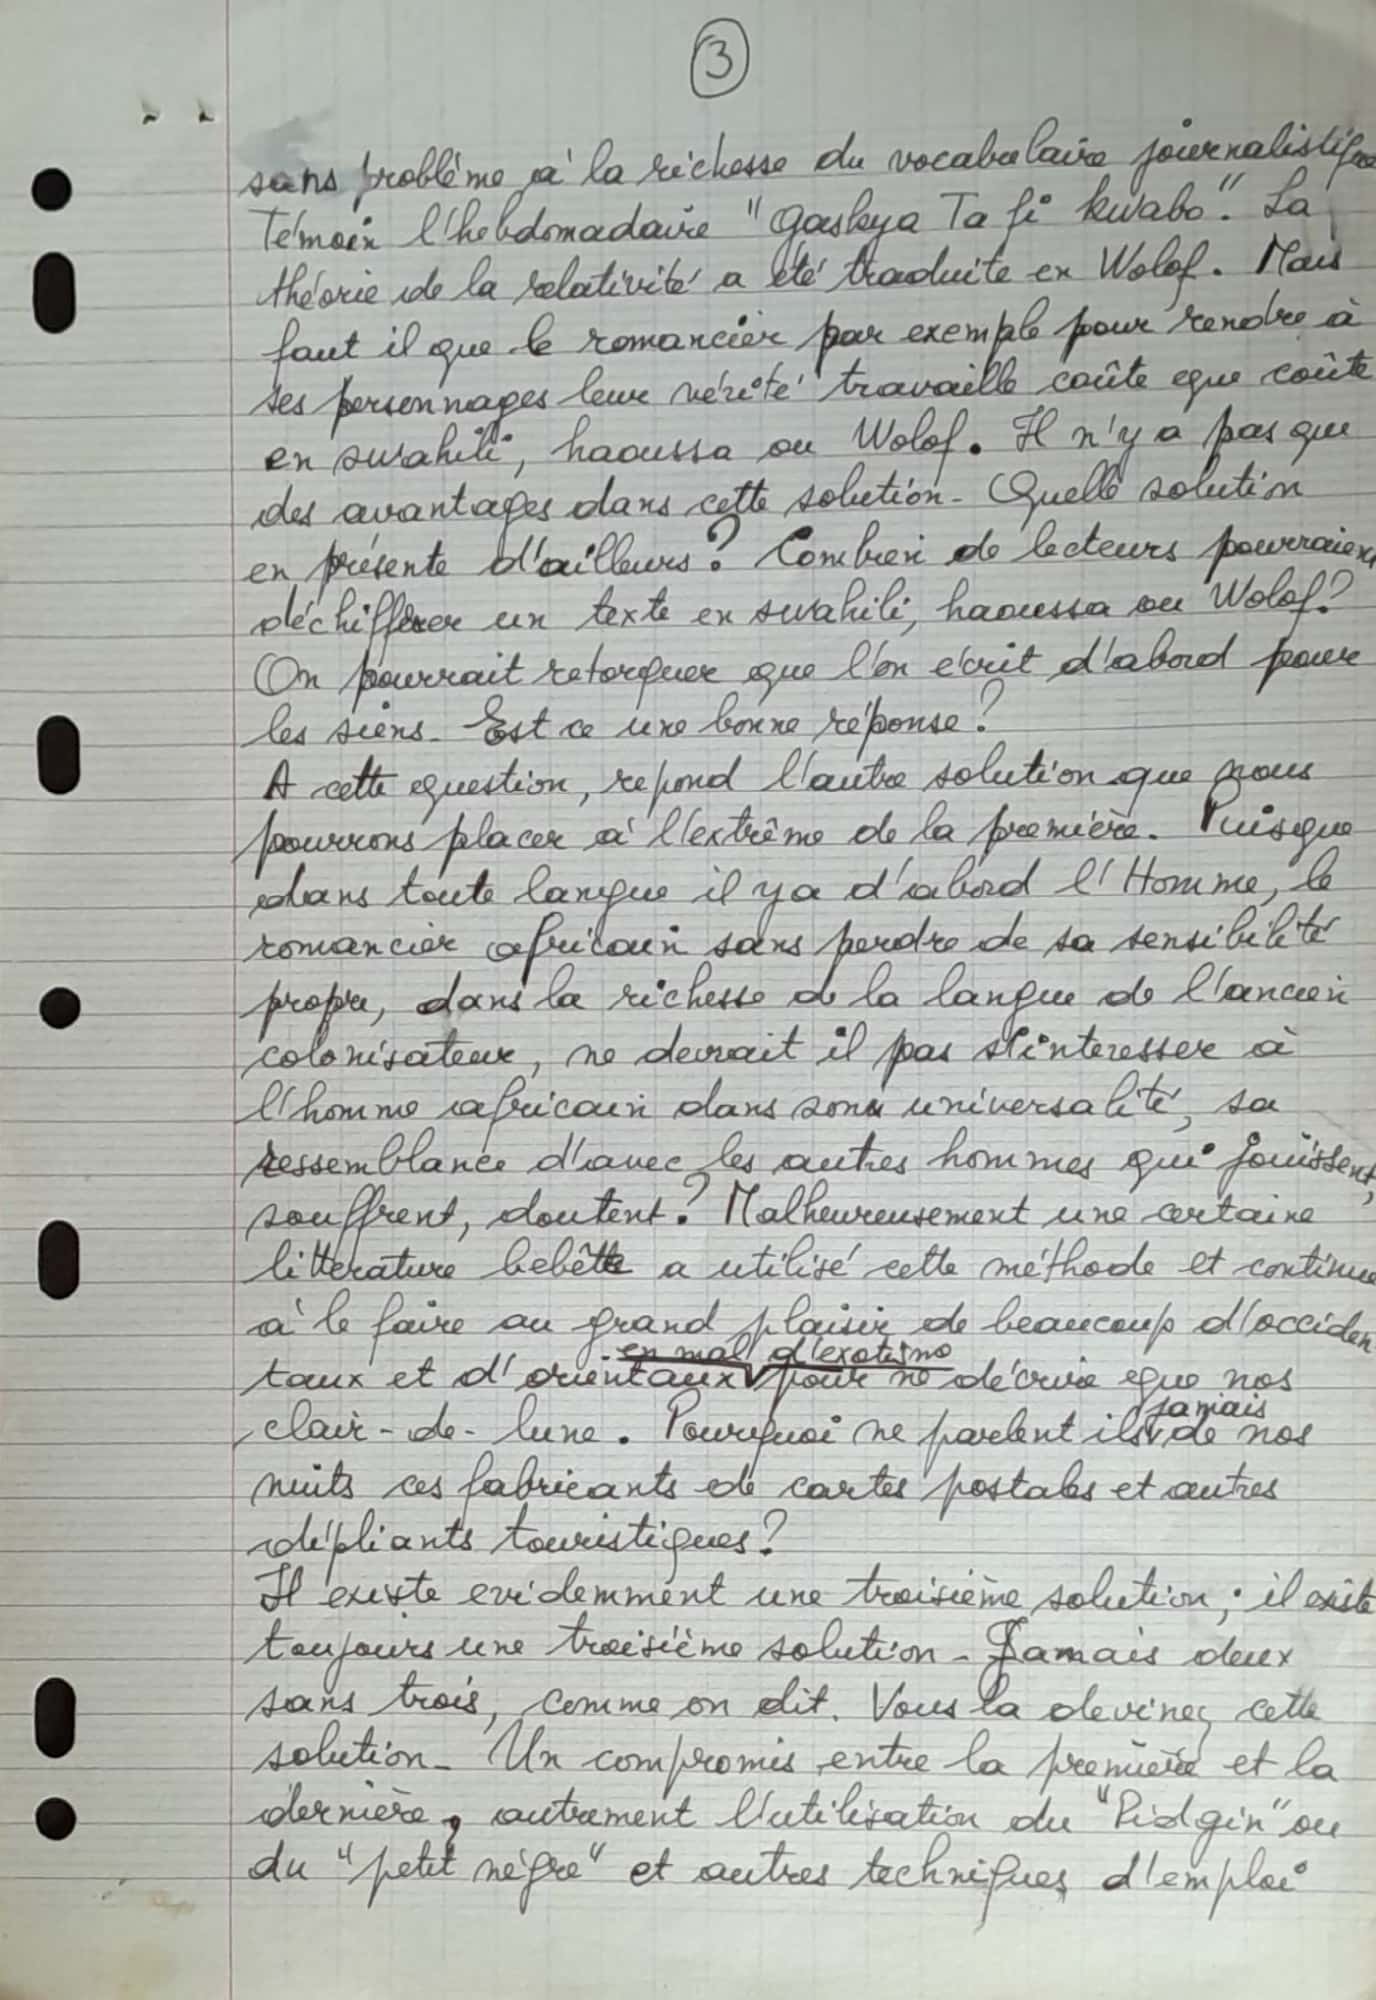 3
sans problème à la richesse du vocabulaire journalistique
Témoin l'hebdomadaire "Gaskya Ta fi kwabo". La
théorie de la relativité a été traduite en Wolof. Mais
faut il que le romancier par exemple pour rendre à
ses personnages leur vérité travaille coûte que coûte
en swahili, haoussa ou Wolof. Il n'y a pas que
des avantages dans cette solution - Quelle solution
en présente d'ailleurs? Combien de lecteurs pourraient
déchiffrer un texte en swahili, haoussa ou Wolof?
On pourrait retorquer que l'on écrit d'abord pour
les siens - Est ce une bonne réponse?
A cette question, repond l'autre solution que nous
pourrons placer à l'extrême de la première. Puisque
dans toute langue il y a d'abord l'Homme, le
romancier africain sans perdre de sa sensibilité
propre, dans la richesse de la langue de l'ancien
colonisateur, ne devrait il pas s'interesser à
l'homme africain dans son universalité, sa
ressemblance d'avec les autres hommes qui jouissent,
souffrent, doutent? Malheureusement une certaine
litterature bebête a utilisé cette méthode et continue
à le faire au grand plaisir de beaucoup d'occiden
taux et d'orientaux en mal d'exotisme pour ne décrire que nos
clair-de-lune. Pourquoi ne parlent ils jamais de nos
nuits ces fabricants de cartes postales et autres
dépliants touristiques?
Il existe evidemment une troisième solution; il existe
toujours une troisième solution - Jamais deux
sans trois, comme on dit. Vous la devinez cette
solution - Un compromis entre la première et la
dernière, autrement l'utilisation du "Pidgin" ou
du "petit nègre" et autres techniques d'emploi